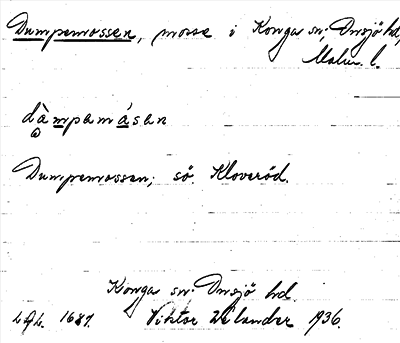 Dumpemossen, mosse i Konga sn; Onsjö hd,
Malm. l.
dàmpamásan
Dumpemossen; sö Kloveröd.
Konga sn: Onsjö hd.
LAL. 1687. Viktor Wilander 1936.